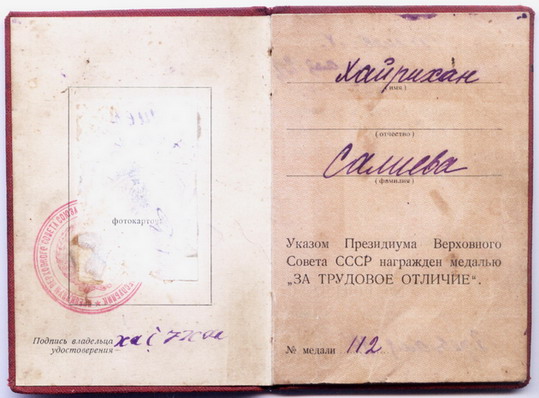 фотокарточ
Подпись владельца
удостоверения —
Хайрихан
(имя)
(отчество)
Салиева
(фамилия)
Указом Президиума Верховного
Совета СССР награжден медалью
„ЗА ТРУДОВОЕ ОТЛИЧИЕ“.
№ медали 112